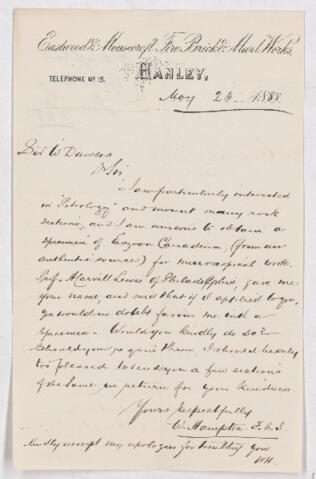 Eastwood & Mousecroft Fire Brick & Marl Works.
TELEPHONE No 15.
HANLEY,
May 23 1888
Sir W Dawson
Dr Sir
I am particularly interested
in "Petrology" and mount many rock
sections, and I am anxious to obtain a
specimen of Eozoon Canadense, (from an
authentic source) for microscopical work.
Prof. Carvill Lewis of Philadelphia, gave me
your name, and said that if I applied to you,
you would no doubt favour me with a
specimen. Would you kindly do so?
Should you you I should be only
too pleased to send you a few sections
of the same, in return for your kindness
Yours respectfully
W. Hampton F.C.S.
Kindly accept my apologies for troubling you
WH.